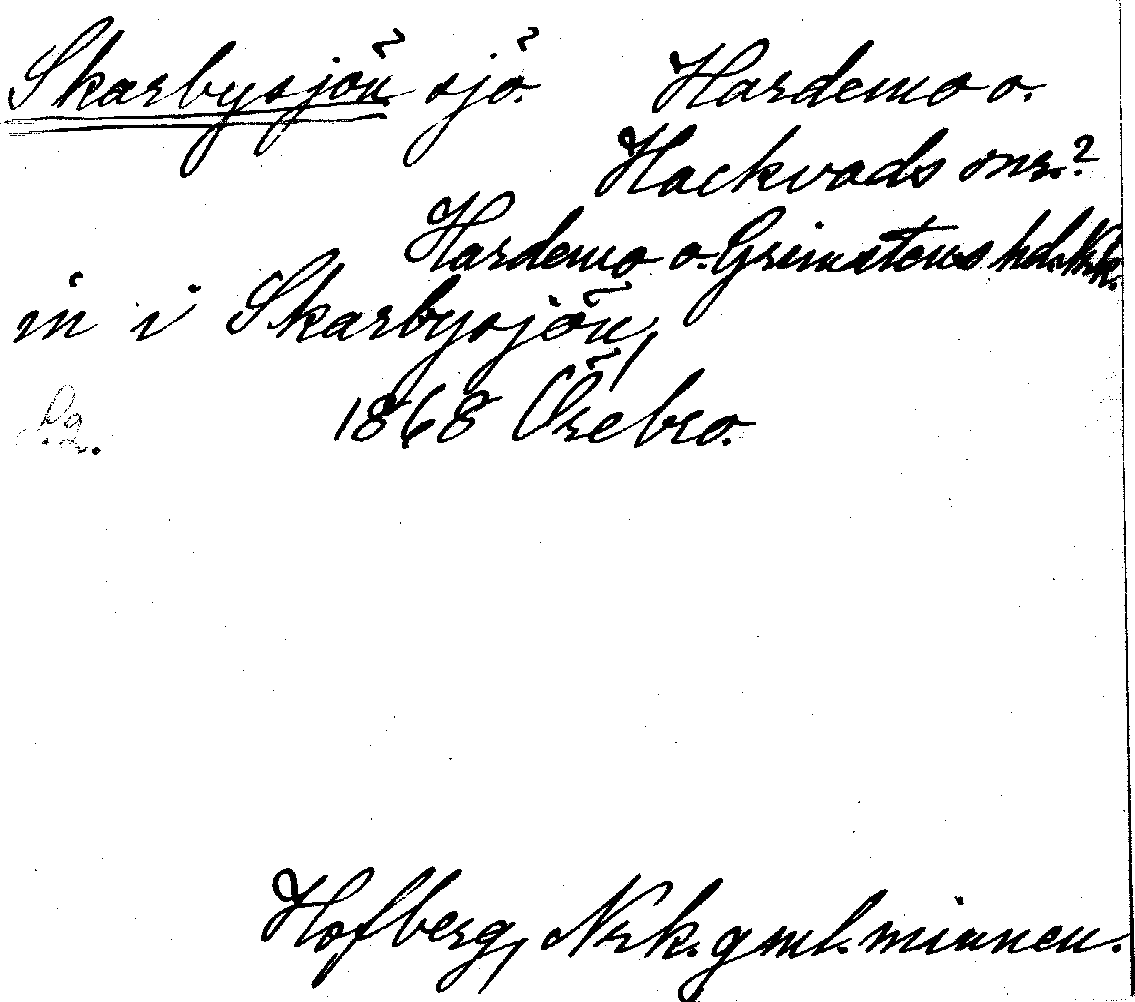 Skarbysjön sjö. Hardemo o.
Hackvads snr.?
Hardemo o. Grimstens hd. Nrk.
in i Skarbysjön,
1868 Örebro.
Hofberg, Nrk. gml. minnen.